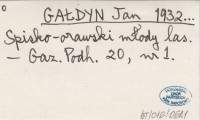 GAŁDYN Jan 1932...
Spisko-orawski młody las.
— Gaz. Podh. 20, nr 1.